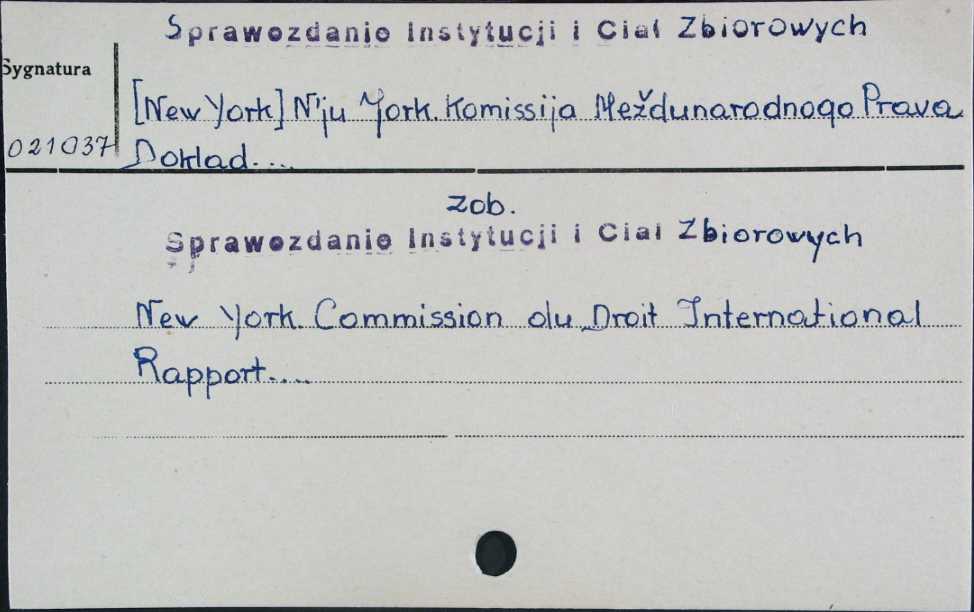 Sprawozdanie Instytucji i Ciał Zbiorowych
Sygnatura
[New York] N'ju York. Komissija Meždunarodnogo Prava
021037
Doklad....
zob.
Sprawozdanie Instytucji i Ciał Zbiorowych
New York. Commission du Droit International
Rapport....